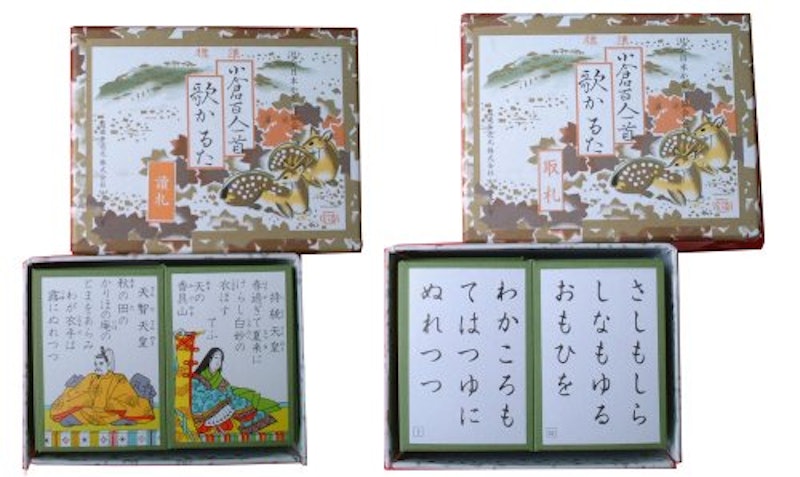 標準
小倉百人一首
歌かるた
讀札
標準
小倉百人一首
歌かるた
取札
持統天皇
春過ぎて夏来に
けらし白妙の
衣ほす
てふ
天の
香具山
天智天皇
秋の田の
かりほの庵の
とまをあらみ
わが衣手は
露にぬれつつ
さしもしら
しなもゆる
おもひを
わかころも
てはつゆに
ぬれつつ